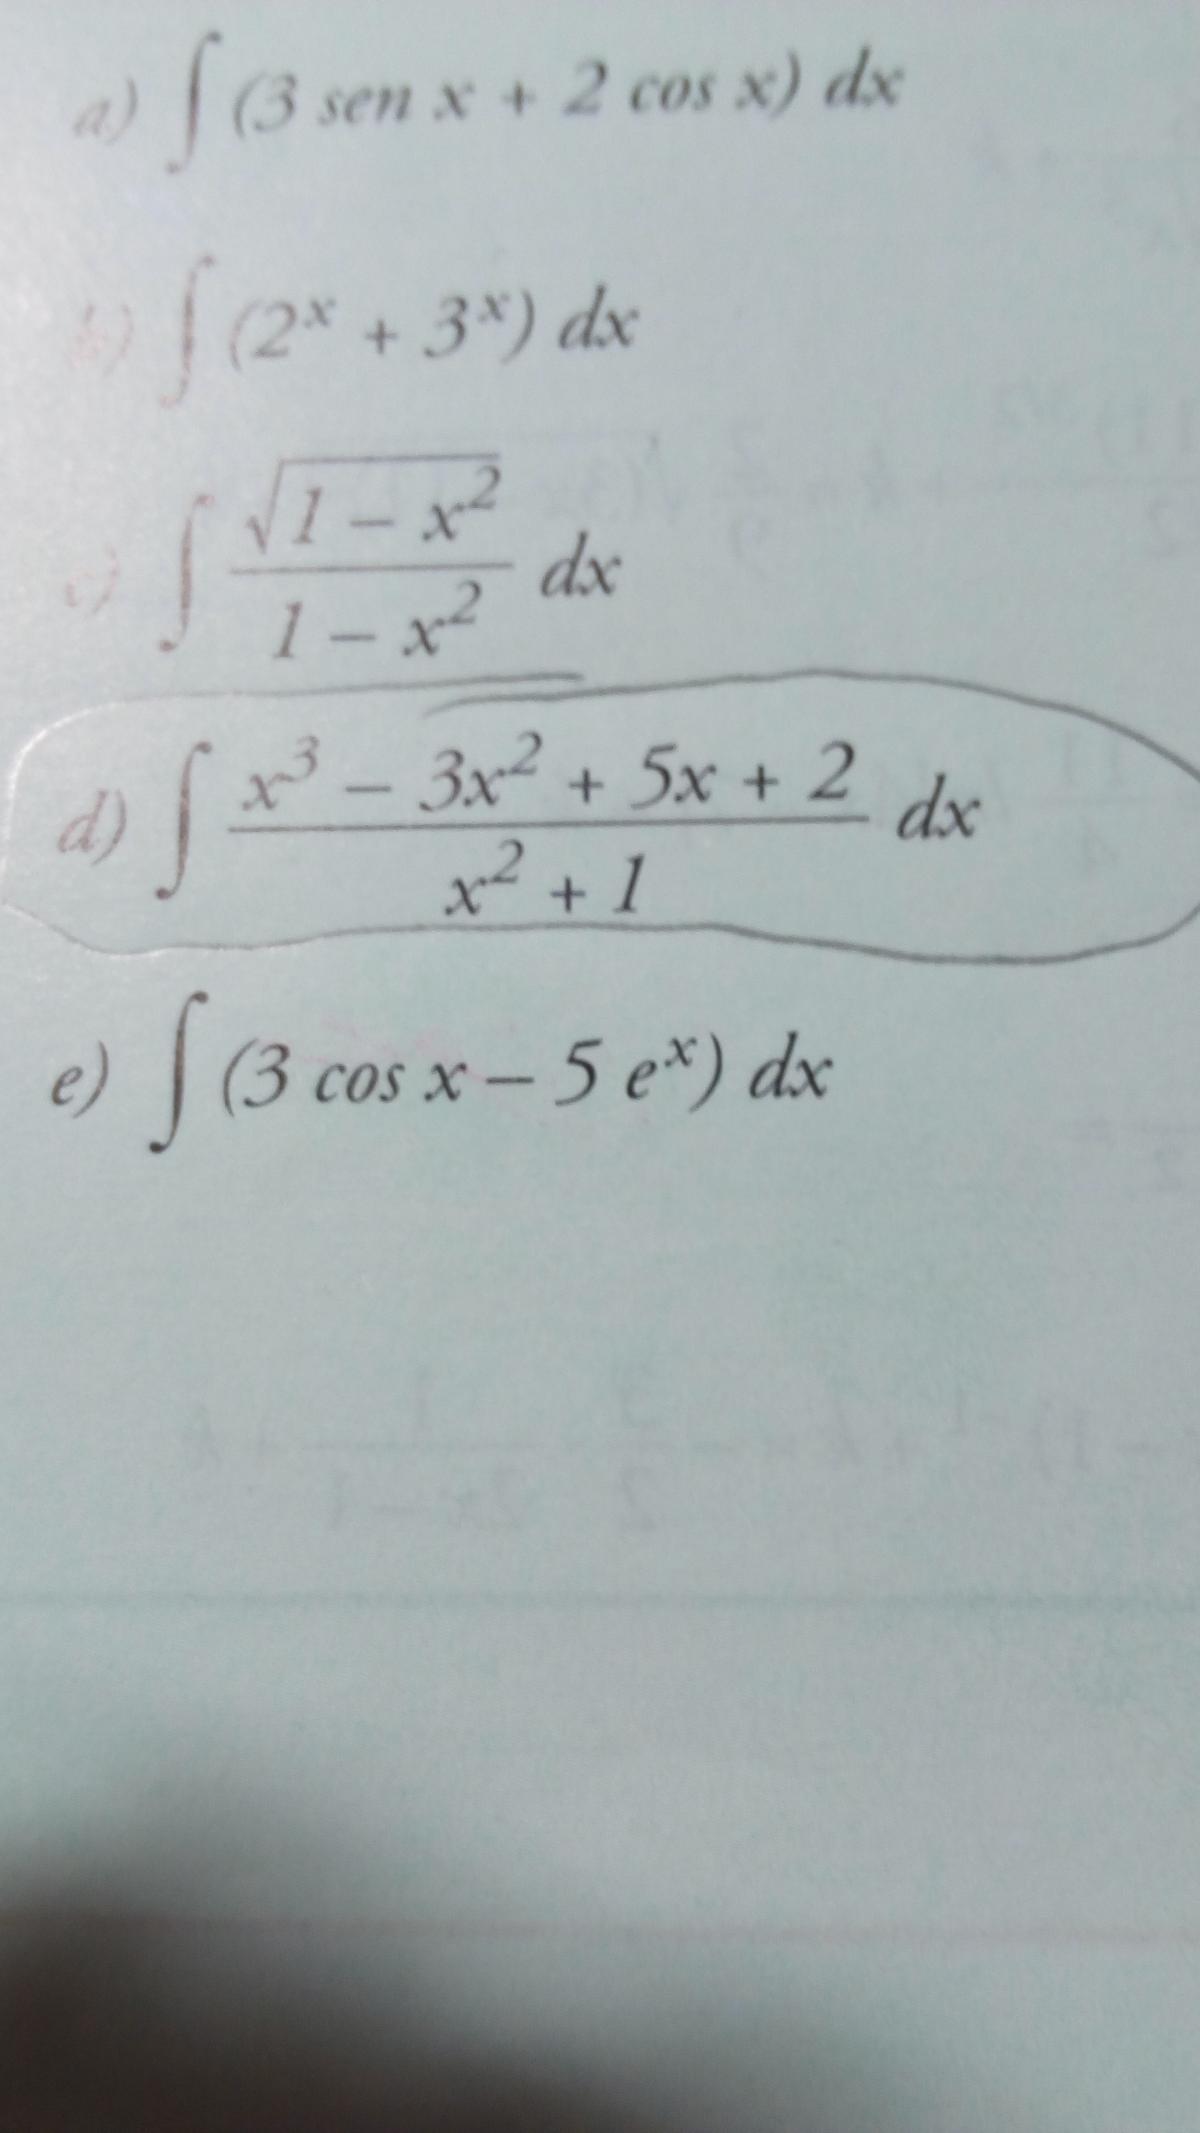 a) ∫ (3 sen x + 2 cos x) dx
b) ∫ (2ˣ + 3ˣ) dx
c) ∫ √(1 – x²) / (1 – x²) dx
d) ∫ (x³ – 3x² + 5x + 2) / (x² + 1) dx
e) ∫ (3 cos x – 5 eˣ) dx